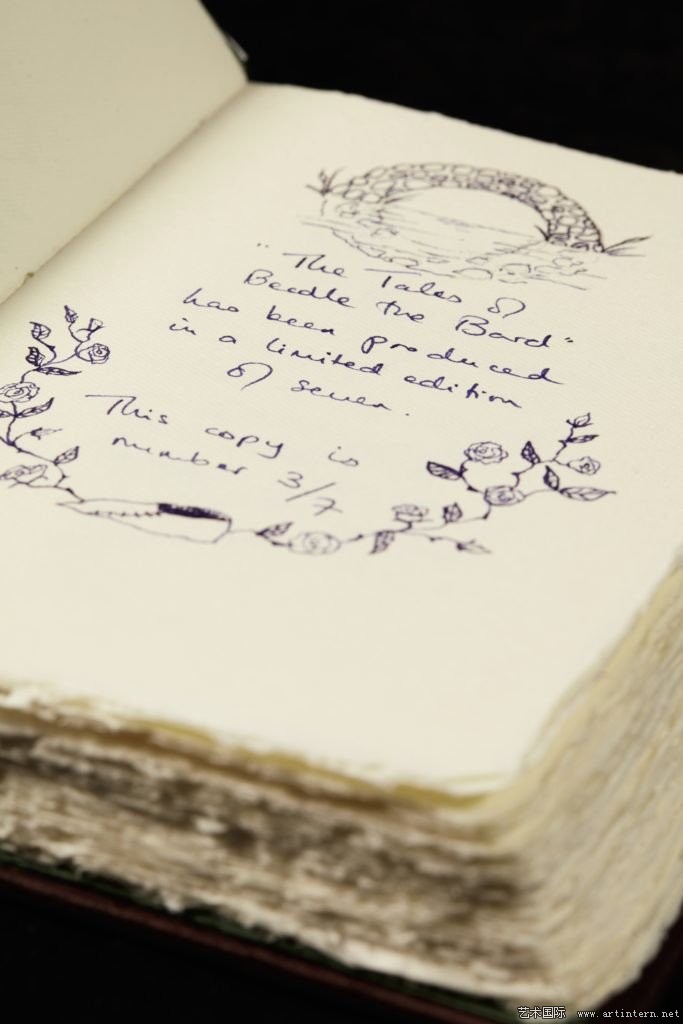 "The Tales of
Beedle the Bard"
has been produced
in a limited edition
of seven.
This copy is
number 3/7
艺术国际 www.artintern.net